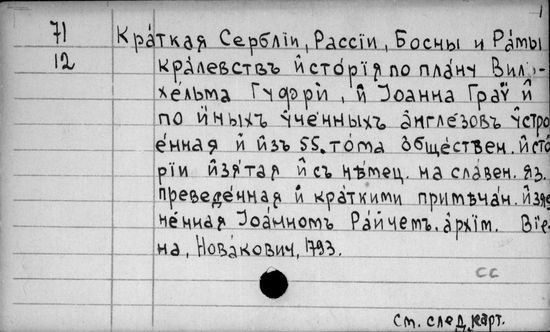 1
71 Кра́ткая Серблїи, Рассїи, Босны и Ра́мы
12 кра́левствъ и́сто́рїя по пла́ну Вил-
хе́льма Гудри́, и́ Іоанна Граӱ и́
по и́ныхъ у́че́нныхъ а́нгле́зовъ у́стро
е́нная и́ и́зъ 55. то́ма о́бще́ствен. и́сто
рїи и́зя́тая и́ съ нѣ́мец. на сла́вен. яз.
преведе́нная и́ кра́ткими примѣча́н. и́зяс
не́нная Іоа́нномъ Ра́йчемъ. а́рхїм. Вїе-
на, Нова́кович, 1793.
СС
См. след. карт.